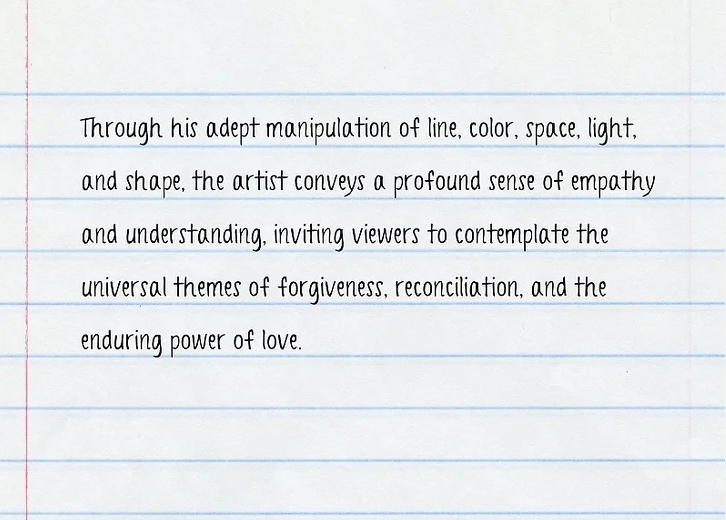 Through his adept manipulation of line, color, space, light,
and shape, the artist conveys a profound sense of empathy
and understanding, inviting viewers to contemplate the
universal themes of forgiveness, reconciliation, and the
enduring power of love.